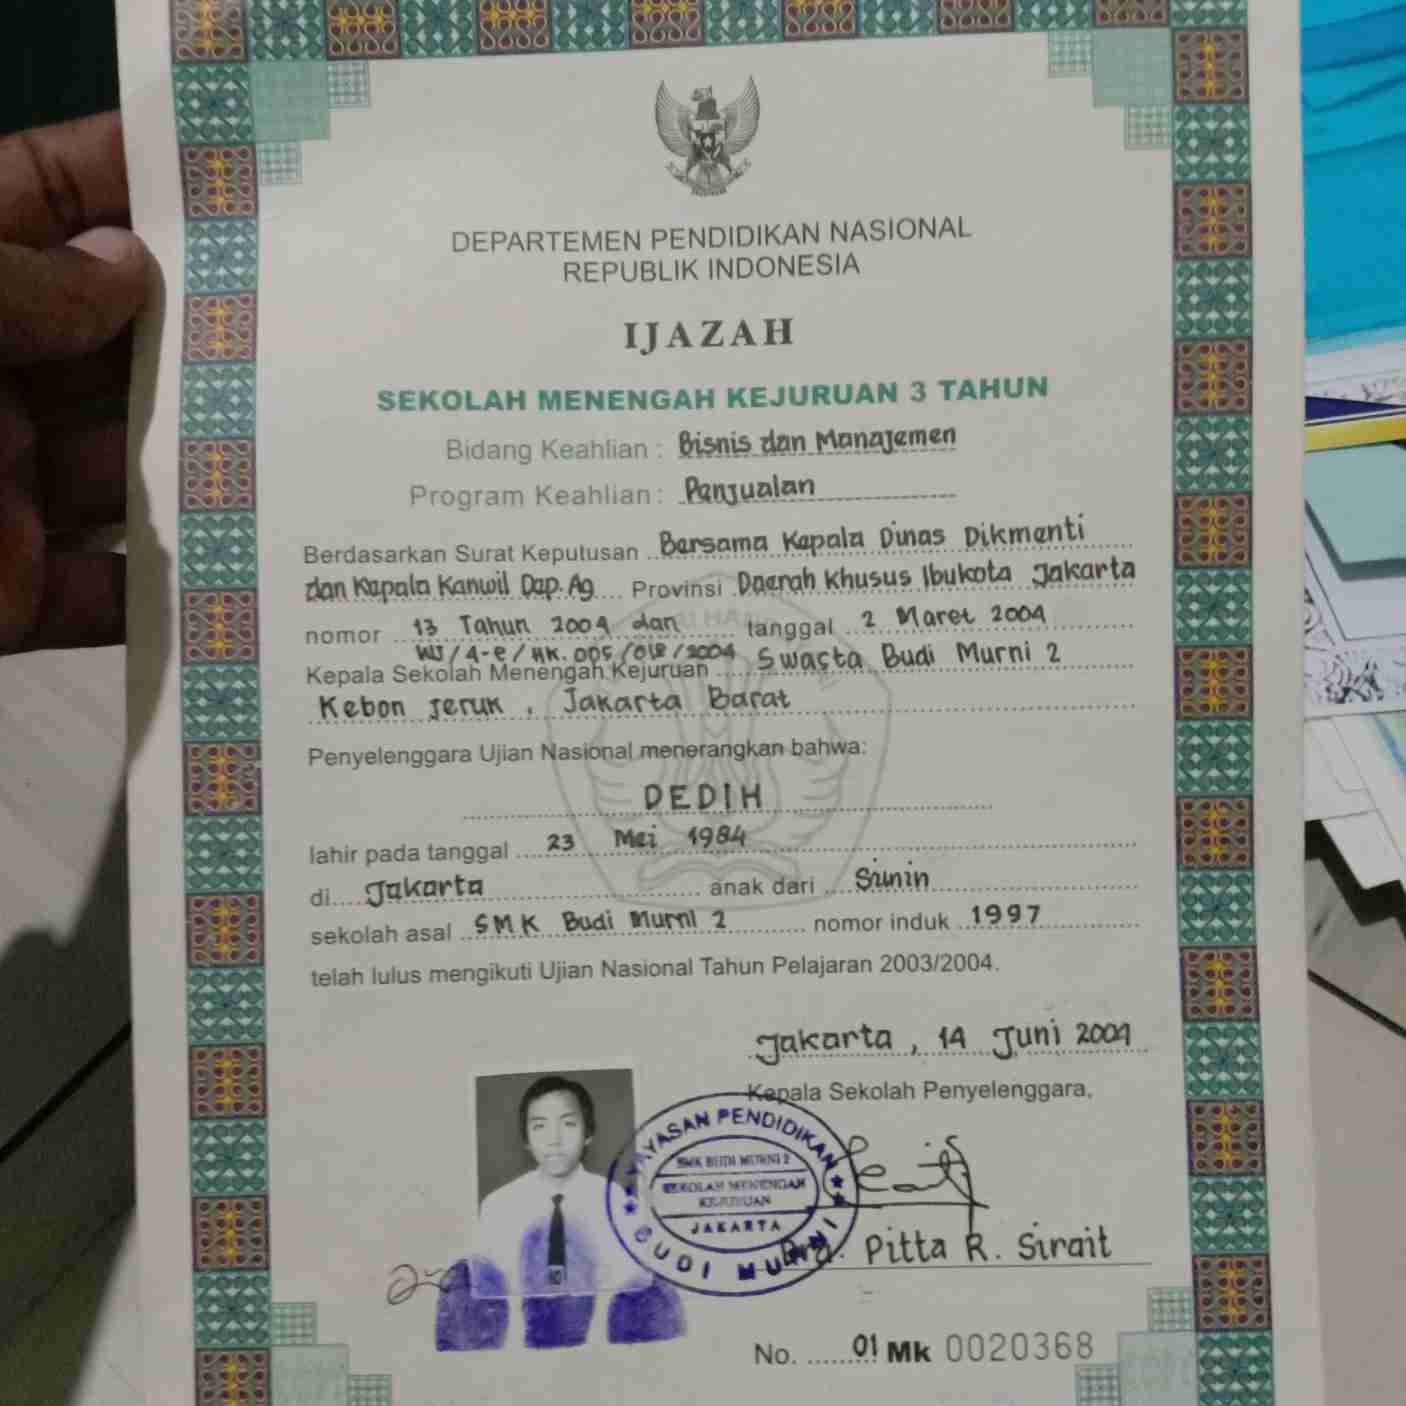 DEPARTEMEN PENDIDIKAN NASIONAL
REPUBLIK INDONESIA
IJAZAH
SEKOLAH MENENGAH KEJURUAN 3 TAHUN
Bidang Keahlian : Bisnis dan Manajemen
Program Keahlian : Penjualan
Berdasarkan Surat Keputusan Bersama Kepala Dinas Dikmenti
dan Kepala Kanwil Dep. Ag Provinsi Daerah Khusus Ibukota Jakarta
nomor 13 Tahun 2004 dan tanggal 2 Maret 2004
/4-e/HK.005/018/2004
Kepala Sekolah Menengah Kejuruan Swasta Budi Murni 2
Kebon Jeruk, Jakarta Barat
Penyelenggara Ujian Nasional menerangkan bahwa:
DEDIH
lahir pada tanggal 23 Mei 1984
di Jakarta anak dari Siinin
sekolah asal SMK Budi Murni 2 nomor induk 1997
telah lulus mengikuti Ujian Nasional Tahun Pelajaran 2003/2004.
Jakarta, 14 Juni 2004
Kepala Sekolah Penyelenggara,
YAYASAN PENDIDIKAN
SMK BUDI MURNI 2
SEKOLAH MENENGAH
KEJURUAN
JAKARTA
BUDI MURNI
Dra. Pitta R. Sirait
No. 01 Mk 0020368